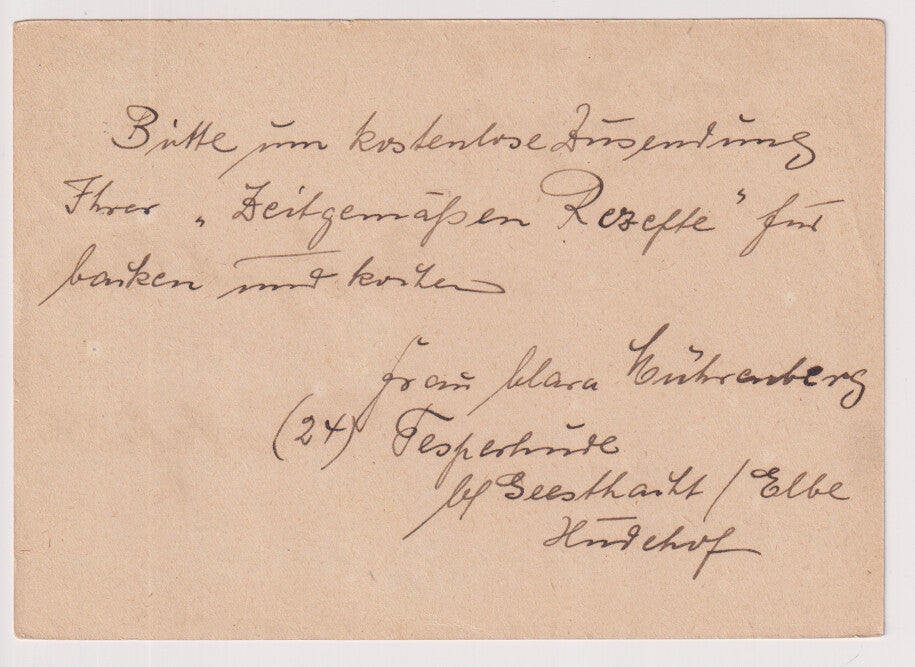 Bitte um kostenlose Zusendung
Ihrer „Zeitgemäßen Rezepte" für
backen und kochen
Frau Clara
(24) Tesperhude
b/ Geesthacht / Elbe
Hudehof